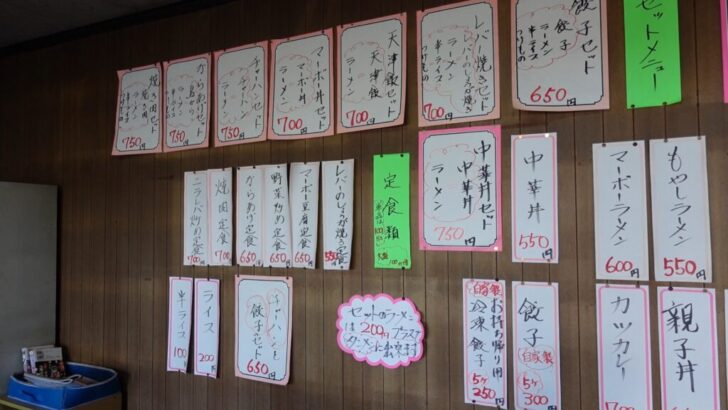 セットメニュー
餃子セット
餃子
ラーメン
半ライス
つけもの
650円
レバー焼きセット
レバーのしょうが焼き
ラーメン
半ライス
つけもの
700円
天津飯セット
天津飯
ラーメン
700円
マーボー丼セット
マーボー丼
ラーメン
700円
チャーハンセット
チャーハン
ラーメン
750円
からあげセット
ラーメン
半ライス
750円
焼き肉セット
焼き肉
ラーメン
半ライス
つけもの
750円
もやしラーメン
550円
マーボーラーメン
600円
中華丼
550円
中華丼セット
中華丼
ラーメン
750円
定食類
レバーのしょうが焼き定食
550円
マーボー豆腐定食
650円
野菜炒め定食
650円
からあげ定食
650円
焼肉定食
700円
ニラレバ炒め定食
700円
親子丼
カツカレー
700
餃子
自家製
5ヶ
300円
自家製
お持ち帰り用
冷凍餃子
5ヶ
250円
セットのラーメン
は200円プラスで
チャーハンと
餃子セット
650円
ライス
200円
半ライス
100円